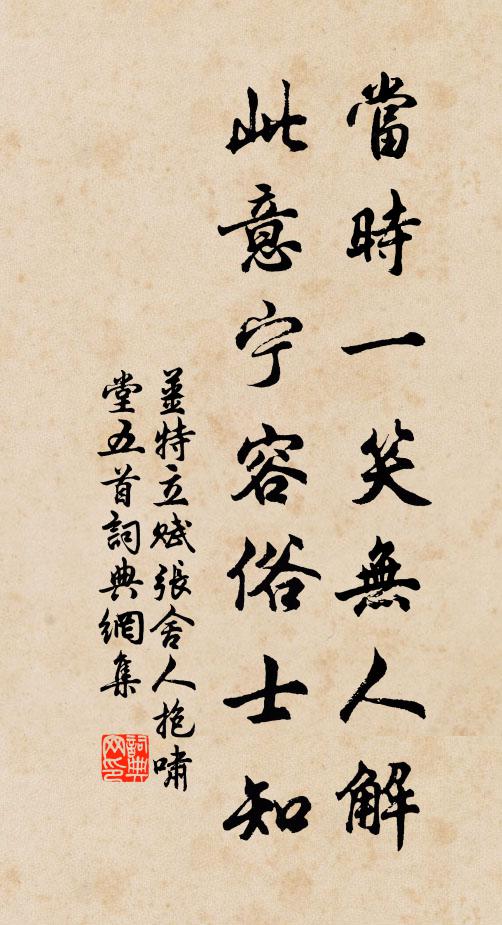 當時一笑無人解
此意宁容俗士知
姜特立赋張舍人抱嘯
堂五首詞典網集
詞典网印